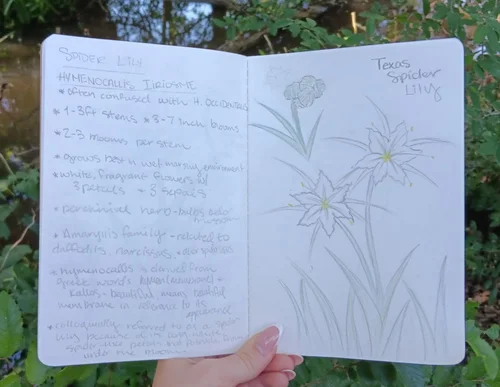 SPIDER LILY
HYMENOCALLIS LIRIOSME
* often confused with H. OCCIDENTALIS
* 1-3ft stems * 3-7 inch blooms
* 2-3 blooms per stem
* grows best in wet marshy environment
* white, fragrant flowers w/
3 petals + 3 sepals
* perennial herb
* Amaryllis family - related to
daffodils, narcissus,
* Hymenocallis is derived from
Greek words
Kallos - beautiful
membrane in reference to its
appearance
* colloquially referred to as a spider
lily because of its long
spider-like
under the
Texas
Spider
Lily